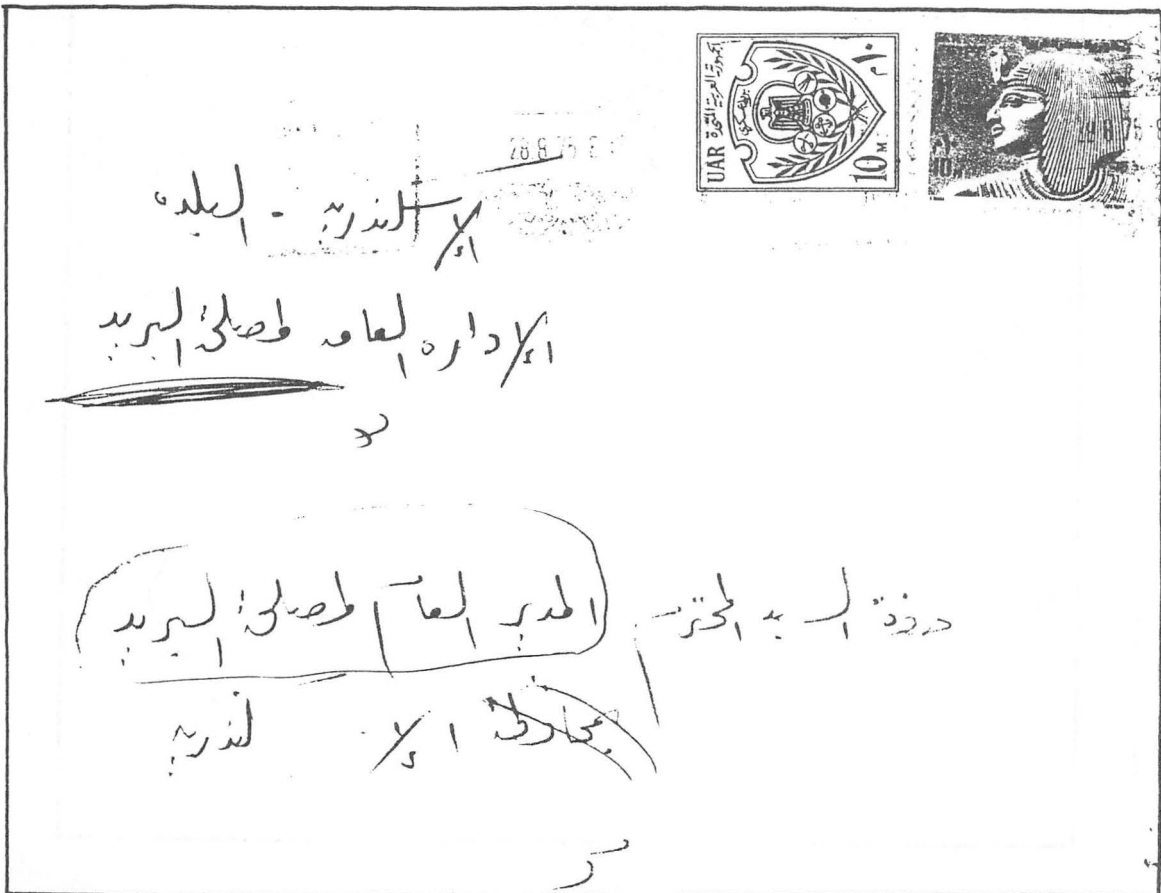 جمهورية العربية المتحدة UAR
10 M
١٠ م
10
28.8.75
29.8.75
الإسكندرية - البلد
الإدارة العامة لمصلحة البريد
السيد المحترم
المدير العام لمصلحة البريد
بمحافظة الإسكندرية